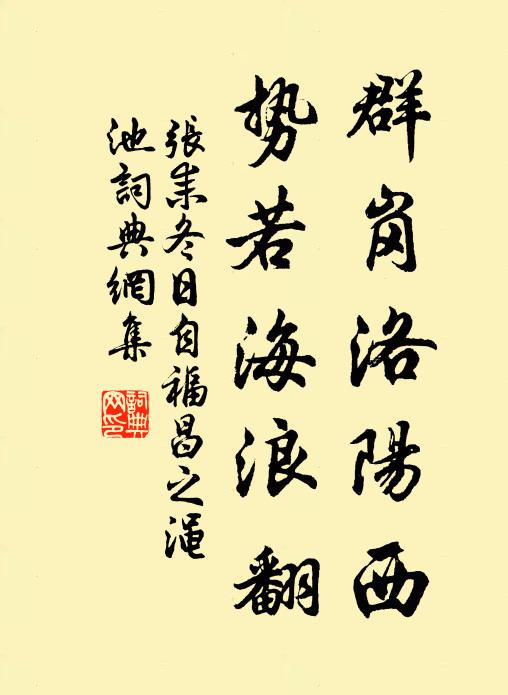 群岗洛陽西
势若海浪翻
張耒冬日自福昌之渑
池詞典網集
詞典
网印